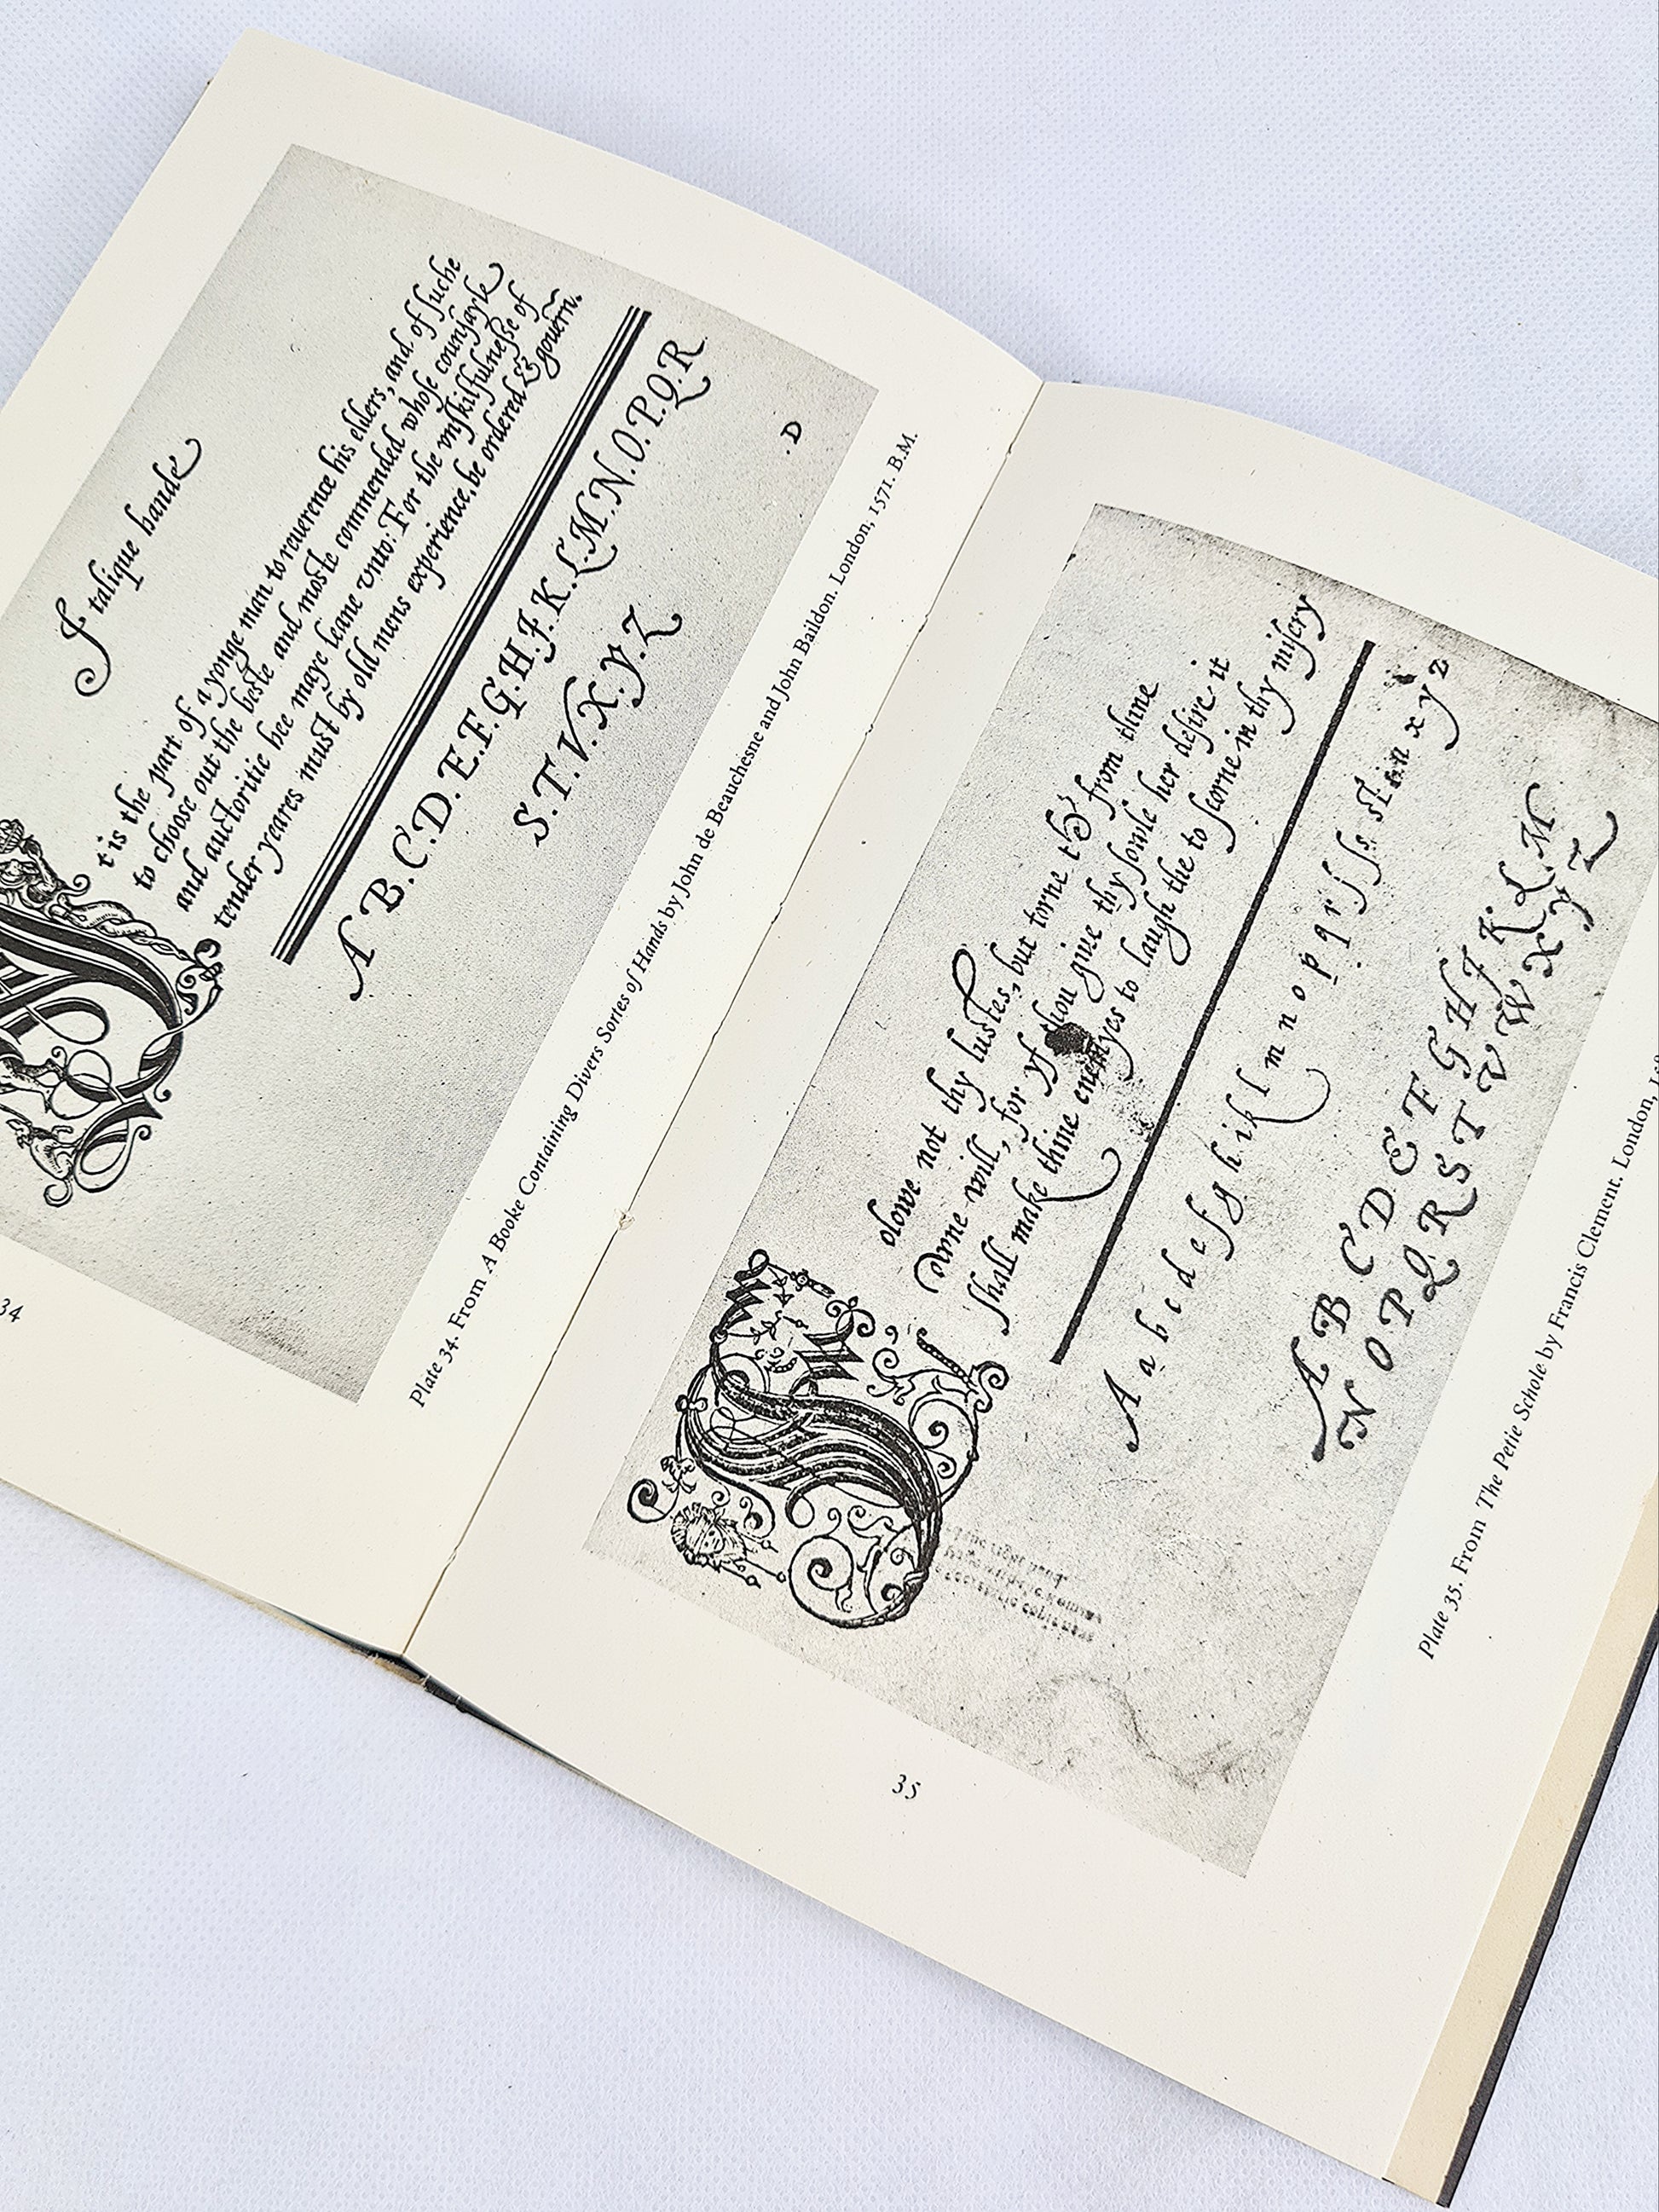 Italique hande
t is the part of a yonge man to reuerence his elders, and of ſuche
to choose out the beste and moste commended whose counsayle
and auctoritie hee maye leane vnto: For the vnſkilfulneſse of
tender yeares must by old mens experience, be ordered & gouern̄.
A B.C.D.E.F.G.H.J.K.L.M.N.O.P.Q.R.
S.T.V.X.y.Z
.D
Plate 34. From A Booke Containing Divers Sortes of Hands by John de Beauchesne and John Baildon. London, 1571. B.M.
34
olowe not thy lustes, but torne from thine
owne will, for yf thou giue thy ſowle her deſire it
ſhall make thine enemyes to laugh the to ſcorne in thy miſery
A a b c d e f g h i k l m n o p q r ſ s ſs st u x y z
A B C D E F G H J K L M
N O P Q R S T V W X Y Z
Plate 35. From The Petie Schole by Francis Clement. London,
35